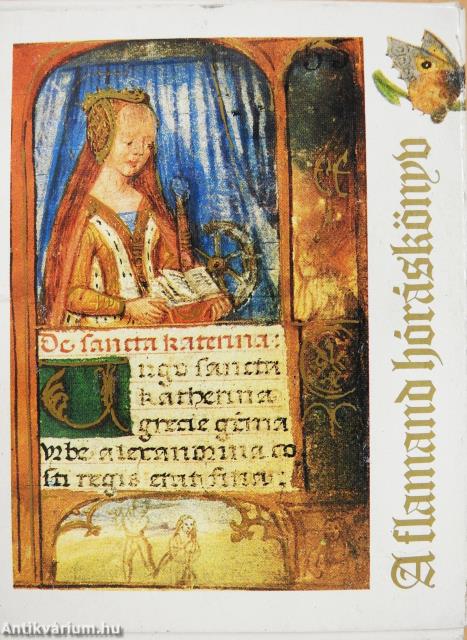 De sancta katerina:
Virgo sancta
katherina
grecie gēma
vrbe alexandrina co
sti regis erat filia:
A flamand hóráskönyv
Antikvárium.hu